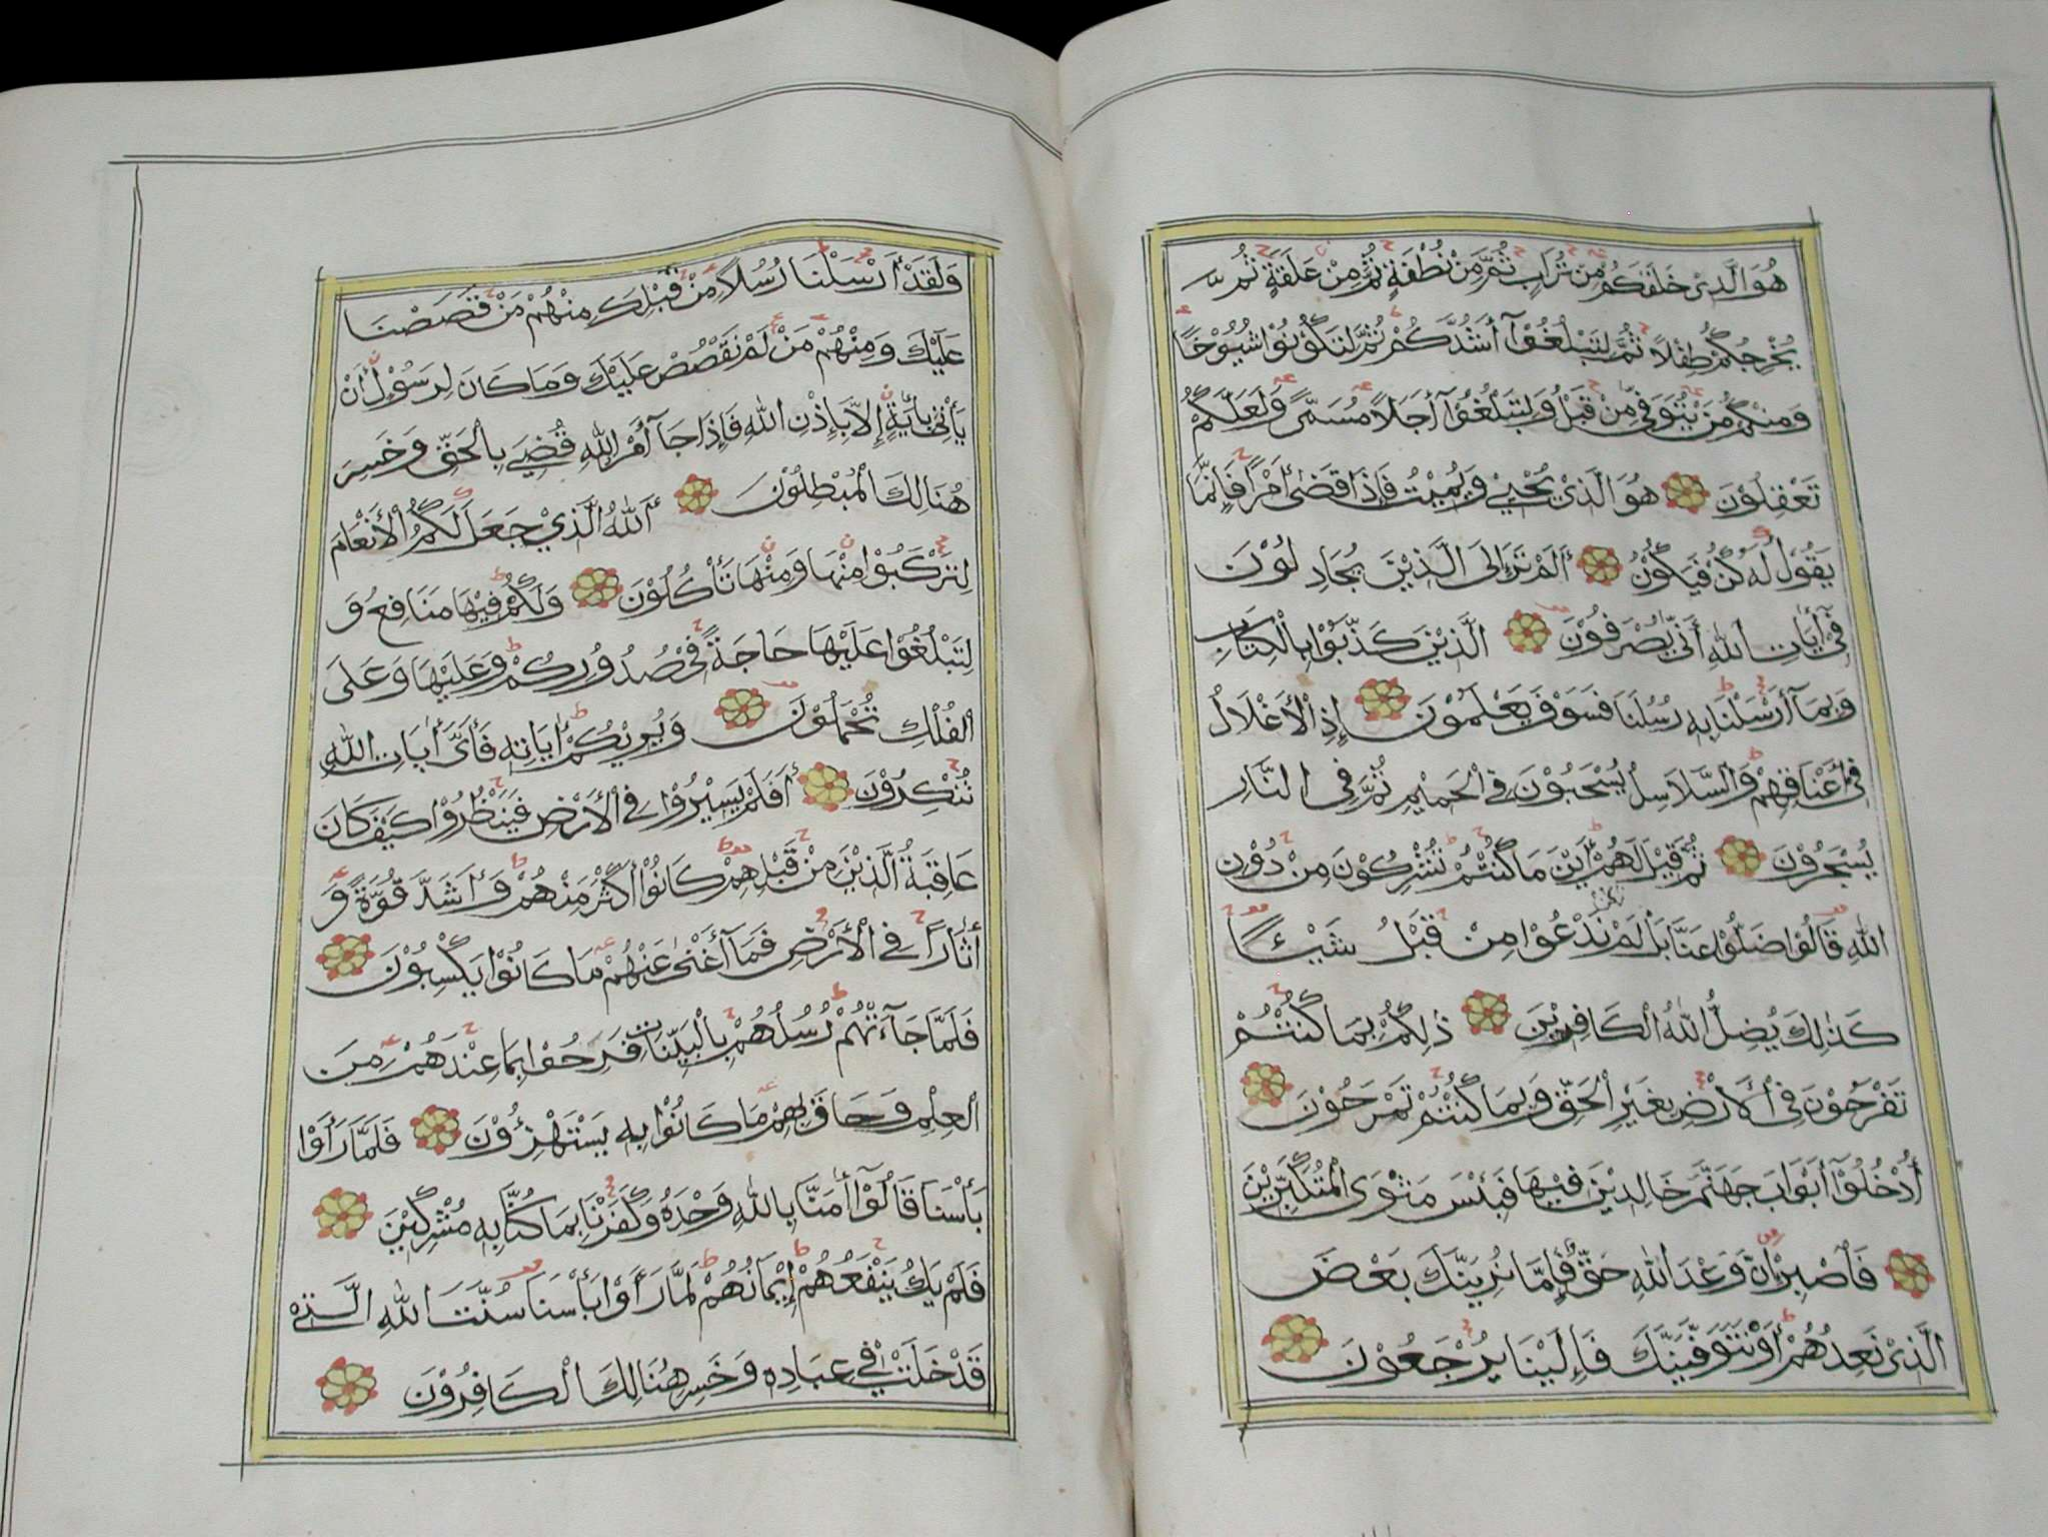 هُوَ الَّذِيْ خَلَقَكُمْ مِنْ تُرَابٍ ثُمَّ مِنْ نُطْفَةٍ ثُمَّ مِنْ عَلَقَةٍ ثُمَّ
يُخْرِجُكُمْ طِفْلاً ثُمَّ لِتَبْلُغُوْآ أَشُدَّكُمْ ثُمَّ لِتَكُوْنُوْا شُيُوْخًا
وَمِنْكُمْ مَنْ يُتَوَفَّى مِنْ قَبْلُ وَلِتَبْلُغُوْآ أَجَلاً مُسَمًّى وَلَعَلَّكُمْ
تَعْقِلُوْنَ هُوَ الَّذِيْ يُحْيِيْ وَيُمِيْتُ فَإِذَا قَضَى أَمْرًا فَإِنَّمَا
يَقُوْلُ لَهُ كُنْ فَيَكُوْنُ أَلَمْ تَرَ إِلَى الَّذِيْنَ يُجَادِلُوْنَ
فِيْ أٰيَاتِ اللّٰهِ أَنَّى يُصْرَفُوْنَ الَّذِيْنَ كَذَّبُوْا بِالْكِتَابِ
وَبِمَآ أَرْسَلْنَا بِهِ رُسُلَنَا فَسَوْفَ يَعْلَمُوْنَ إِذِ الْأَغْلَالُ
فِيْ أَعْنَاقِهِمْ وَالسَّلَاسِلُ يُسْحَبُوْنَ فِي الْحَمِيْمِ ثُمَّ فِي النَّارِ
يُسْجَرُوْنَ ثُمَّ قِيْلَ لَهُمْ أَيْنَ مَا كُنْتُمْ تُشْرِكُوْنَ مِنْ دُوْنِ
اللّٰهِ قَالُوْا ضَلُّوْا عَنَّا بَلْ لَمْ نَكُنْ نَدْعُوْا مِنْ قَبْلُ شَيْئًا
كَذٰلِكَ يُضِلُّ اللّٰهُ الْكَافِرِيْنَ ذٰلِكُمْ بِمَا كُنْتُمْ
تَفْرَحُوْنَ فِي الْأَرْضِ بِغَيْرِ الْحَقِّ وَبِمَا كُنْتُمْ تَمْرَحُوْنَ
أُدْخُلُوْآ أَبْوَابَ جَهَنَّمَ خَالِدِيْنَ فِيْهَا فَبِئْسَ مَثْوَى الْمُتَكَبِّرِيْنَ
فَاصْبِرْ إِنَّ وَعْدَ اللّٰهِ حَقٌّ فَإِمَّا نُرِيَنَّكَ بَعْضَ
الَّذِيْ نَعِدُهُمْ أَوْ نَتَوَفَّيَنَّكَ فَإِلَيْنَا يُرْجَعُوْنَ
وَلَقَدْ أَرْسَلْنَا رُسُلاً مِنْ قَبْلِكَ مِنْهُمْ مَنْ قَصَصْنَا
عَلَيْكَ وَمِنْهُمْ مَنْ لَمْ نَقْصُصْ عَلَيْكَ وَمَا كَانَ لِرَسُوْلٍ أَنْ
يَأْتِيَ بِأٰيَةٍ إِلَّا بِإِذْنِ اللّٰهِ فَإِذَا جَآءَ أَمْرُ اللّٰهِ قُضِيَ بِالْحَقِّ وَخَسِرَ
هُنَالِكَ الْمُبْطِلُوْنَ أَللّٰهُ الَّذِيْ جَعَلَ لَكُمُ الْأَنْعَامَ
لِتَرْكَبُوْا مِنْهَا وَمِنْهَا تَأْكُلُوْنَ وَلَكُمْ فِيْهَا مَنَافِعُ وَ
لِتَبْلُغُوْا عَلَيْهَا حَاجَةً فِيْ صُدُوْرِكُمْ وَعَلَيْهَا وَعَلَى
الْفُلْكِ تُحْمَلُوْنَ وَيُرِيْكُمْ أٰيَاتِهِ فَأَيَّ أٰيَاتِ اللّٰهِ
تُنْكِرُوْنَ أَفَلَمْ يَسِيْرُوْا فِي الْأَرْضِ فَيَنْظُرُوْا كَيْفَ كَانَ
عَاقِبَةُ الَّذِيْنَ مِنْ قَبْلِهِمْ كَانُوْا أَكْثَرَ مِنْهُمْ وَأَشَدَّ قُوَّةً وَ
أٰثَارًا فِي الْأَرْضِ فَمَآ أَغْنٰى عَنْهُمْ مَا كَانُوْا يَكْسِبُوْنَ
فَلَمَّا جَآءَتْهُمْ رُسُلُهُمْ بِالْبَيِّنَاتِ فَرِحُوْا بِمَا عِنْدَهُمْ مِنَ
الْعِلْمِ وَحَاقَ بِهِمْ مَا كَانُوْا بِهِ يَسْتَهْزِءُوْنَ فَلَمَّا رَأَوْا
بَأْسَنَا قَالُوْآ أٰمَنَّا بِاللّٰهِ وَحْدَهُ وَكَفَرْنَا بِمَا كُنَّا بِهِ مُشْرِكِيْنَ
فَلَمْ يَكُ يَنْفَعُهُمْ إِيْمَانُهُمْ لَمَّا رَأَوْا بَأْسَنَا سُنَّتَ اللّٰهِ الَّتِيْ
قَدْ خَلَتْ فِيْ عِبَادِهِ وَخَسِرَ هُنَالِكَ الْكَافِرُوْنَ